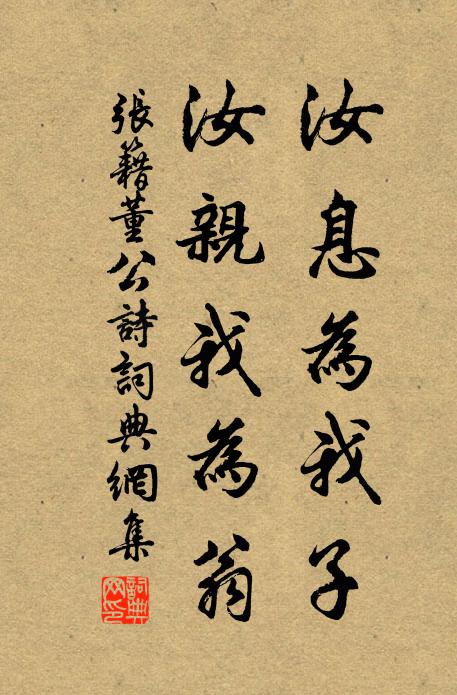 汝息為我子
汝親我為翁
張籍董公詩詞典網集
詞典
网印